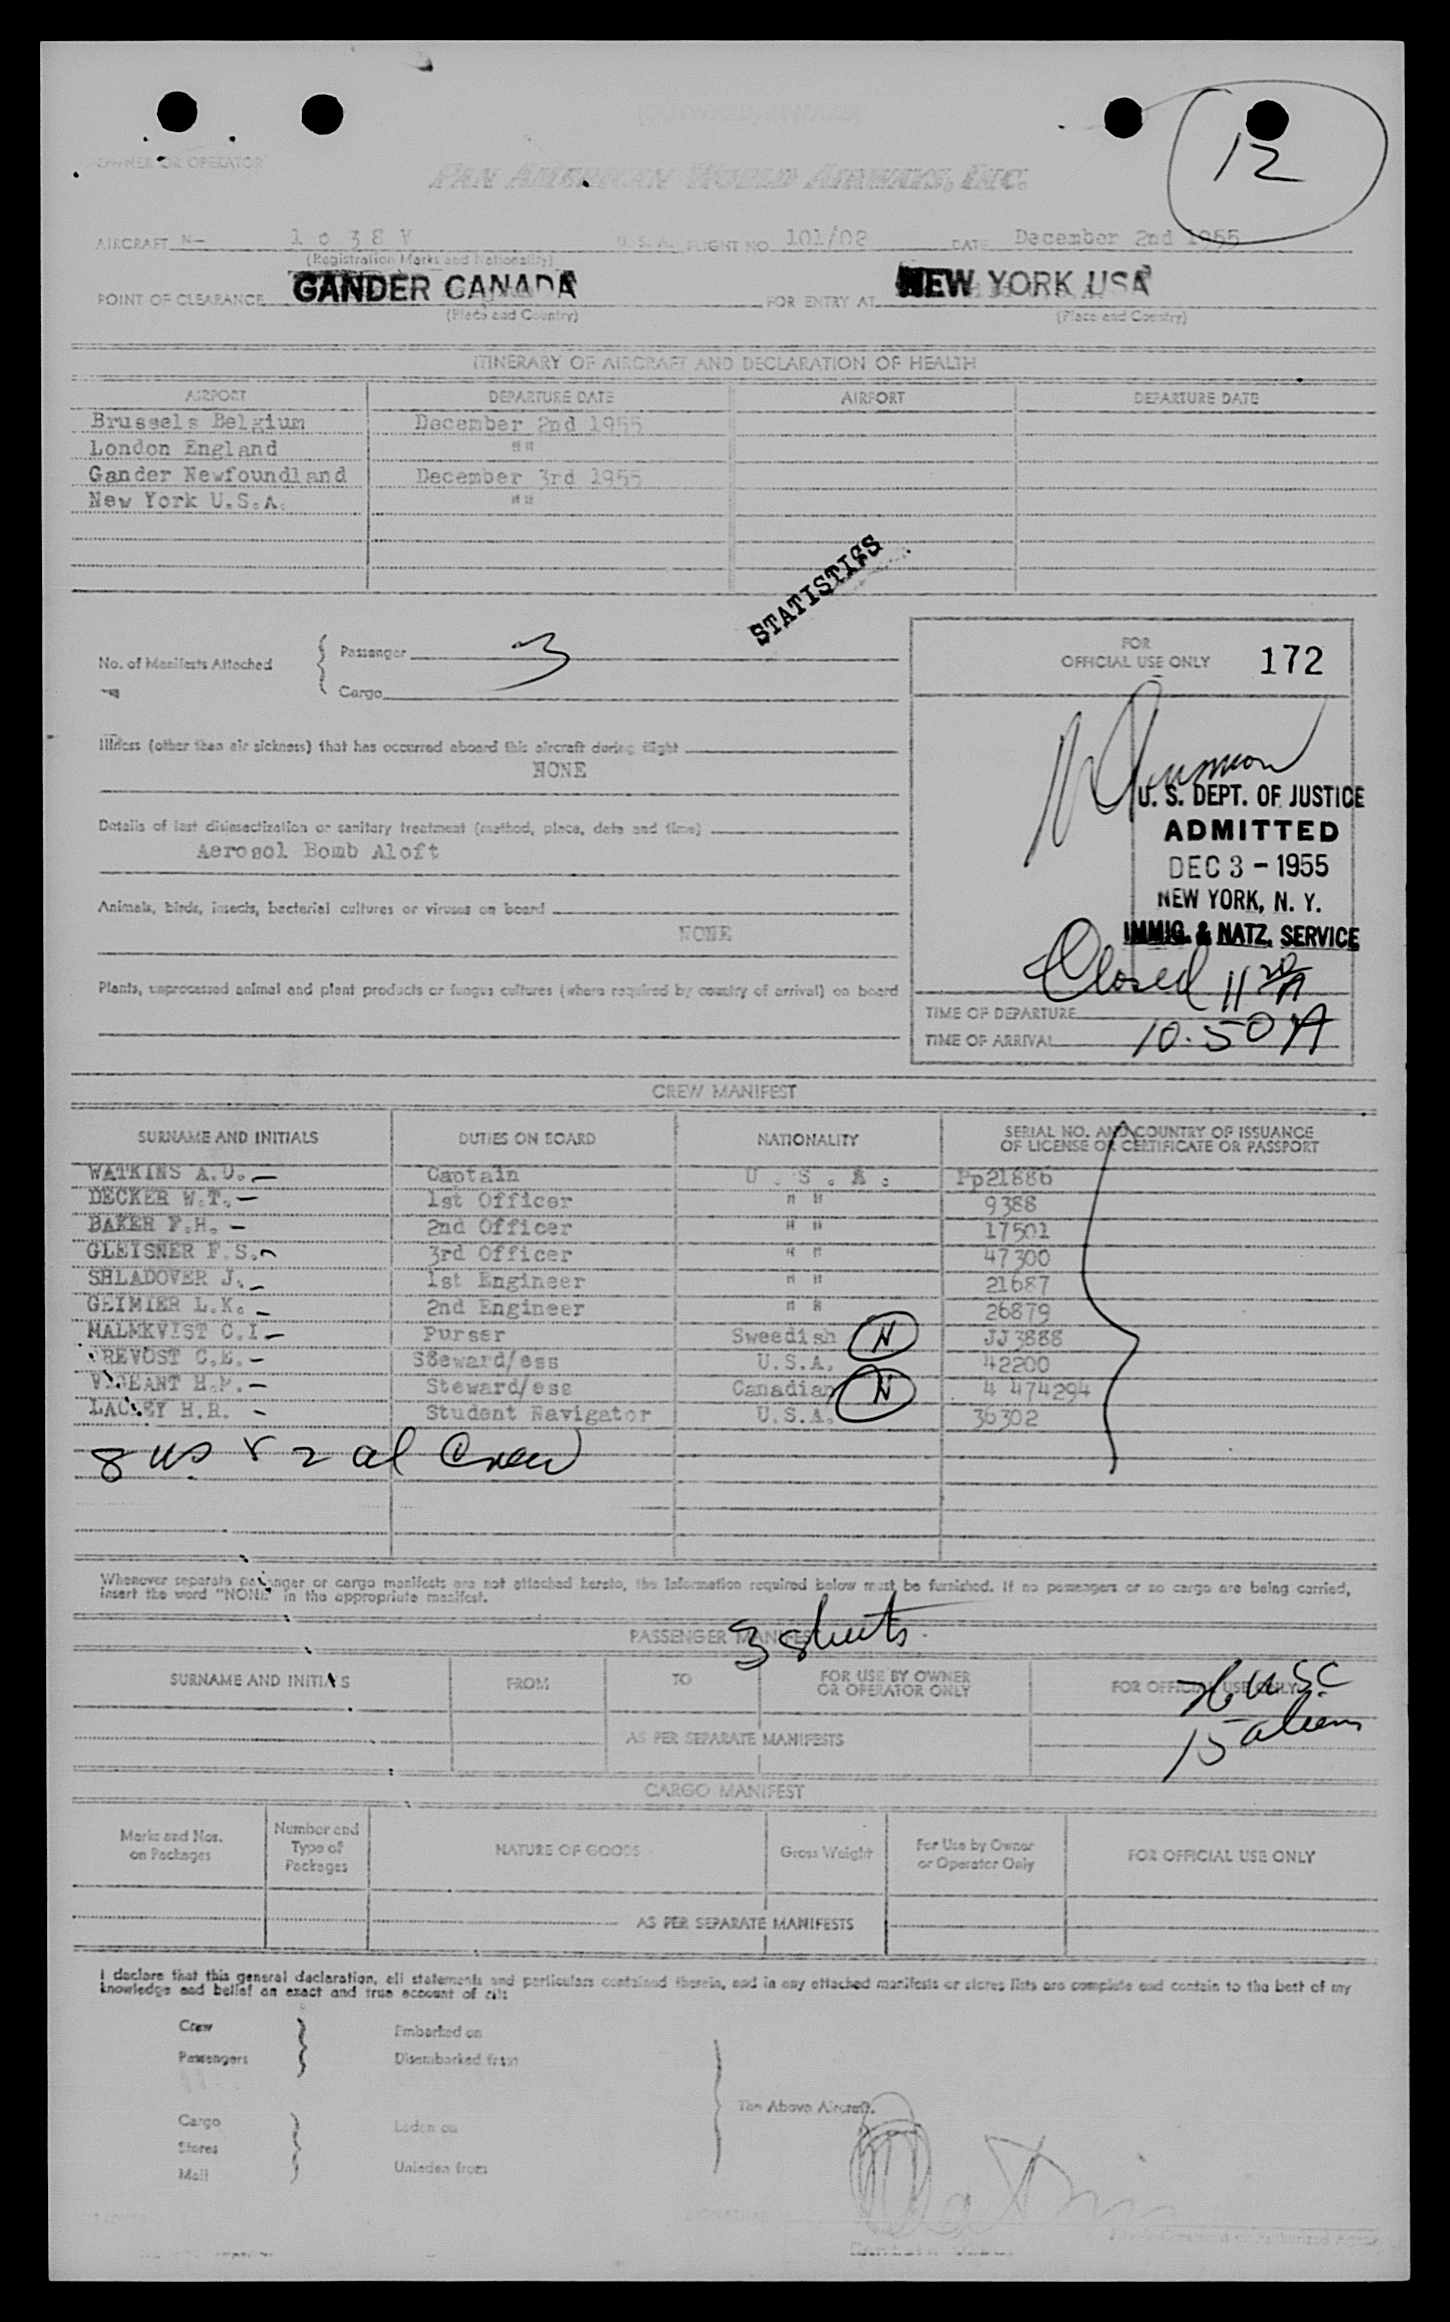 12
OWNER OR OPERATOR
PAN AMERICAN WORLD AIRWAYS, INC.
AIRCRAFT N- 1 0 3 8 V U. S. A. FLIGHT NO. 101/02 DATE December 2nd 1955
(Registration Marks and Nationality)
POINT OF CLEARANCE GANDER CANADA FOR ENTRY AT NEW YORK USA
(Place and Country) (Place and Country)
ITINERARY OF AIRCRAFT AND DECLARATION OF HEALTH
AIRPORT DEPARTURE DATE AIRPORT DEPARTURE DATE
Brussels Belgium December 2nd 1955
London England " "
Gander Newfoundland December 3rd 1955
New York U.S.A. " "
STATISTICS
No. of Manifests Attached { Passenger 3
Cargo
FOR
OFFICIAL USE ONLY 172
Illness (other than air sickness) that has occurred aboard this aircraft during flight
NONE
Details of last disinsectization or sanitary treatment (method, place, date and time)
Aerosol Bomb Aloft
Animals, birds, insects, bacterial cultures or viruses on board
NONE
Plants, unprocessed animal and plant products or fungus cultures (where required by country of arrival) on board
U. S. DEPT. OF JUSTICE
ADMITTED
DEC 3 - 1955
NEW YORK, N. Y.
IMMIG. & NATZ. SERVICE
Closed 11 20 A
TIME OF DEPARTURE
TIME OF ARRIVAL 10.50 A
CREW MANIFEST
SURNAME AND INITIALS DUTIES ON BOARD NATIONALITY SERIAL NO. AND COUNTRY OF ISSUANCE
OF LICENSE OR CERTIFICATE OR PASSPORT
WATKINS A.O. Captain U . S . A . Pp21886
DECKER W.T. 1st Officer " " 9388
BAKER F.H. 2nd Officer " " 17501
GLEISNER F.S. 3rd Officer " " 47300
SHLADOVER J. 1st Engineer " " 21687
GEIMIER L.K. 2nd Engineer " " 26879
MALMKVIST C.I Purser Sweedish N JJ3888
PREVOST C.E. Steward/ess U.S.A. 42200
VIGEANT H.M. Steward/ess Canadian N 4 474294
LACKEY H.R. Student Navigator U.S.A. 36302
8 us & 2 al Crew
Whenever separate passenger or cargo manifests are not attached hereto, the information required below must be furnished. If no passengers or no cargo are being carried,
insert the word "NONE" in the appropriate manifest.
PASSENGER MANIFEST
3 sheets
SURNAME AND INITIALS FROM TO FOR USE BY OWNER
OR OPERATOR ONLY FOR OFFICIAL USE ONLY
USC
15 aliens
AS PER SEPARATE MANIFESTS
CARGO MANIFEST
Marks and Nos.
on Packages Number and
Type of
Packages NATURE OF GOODS Gross Weight For Use by Owner
or Operator Only FOR OFFICIAL USE ONLY
AS PER SEPARATE MANIFESTS
I declare that this general declaration, all statements and particulars contained therein, and in any attached manifests or stores lists are complete and contain to the best of my
knowledge and belief an exact and true account of all:
Crew Embarked on
Passengers Disembarked from
The Above Aircraft.
Cargo Laden on
Stores
Mail Unladen from